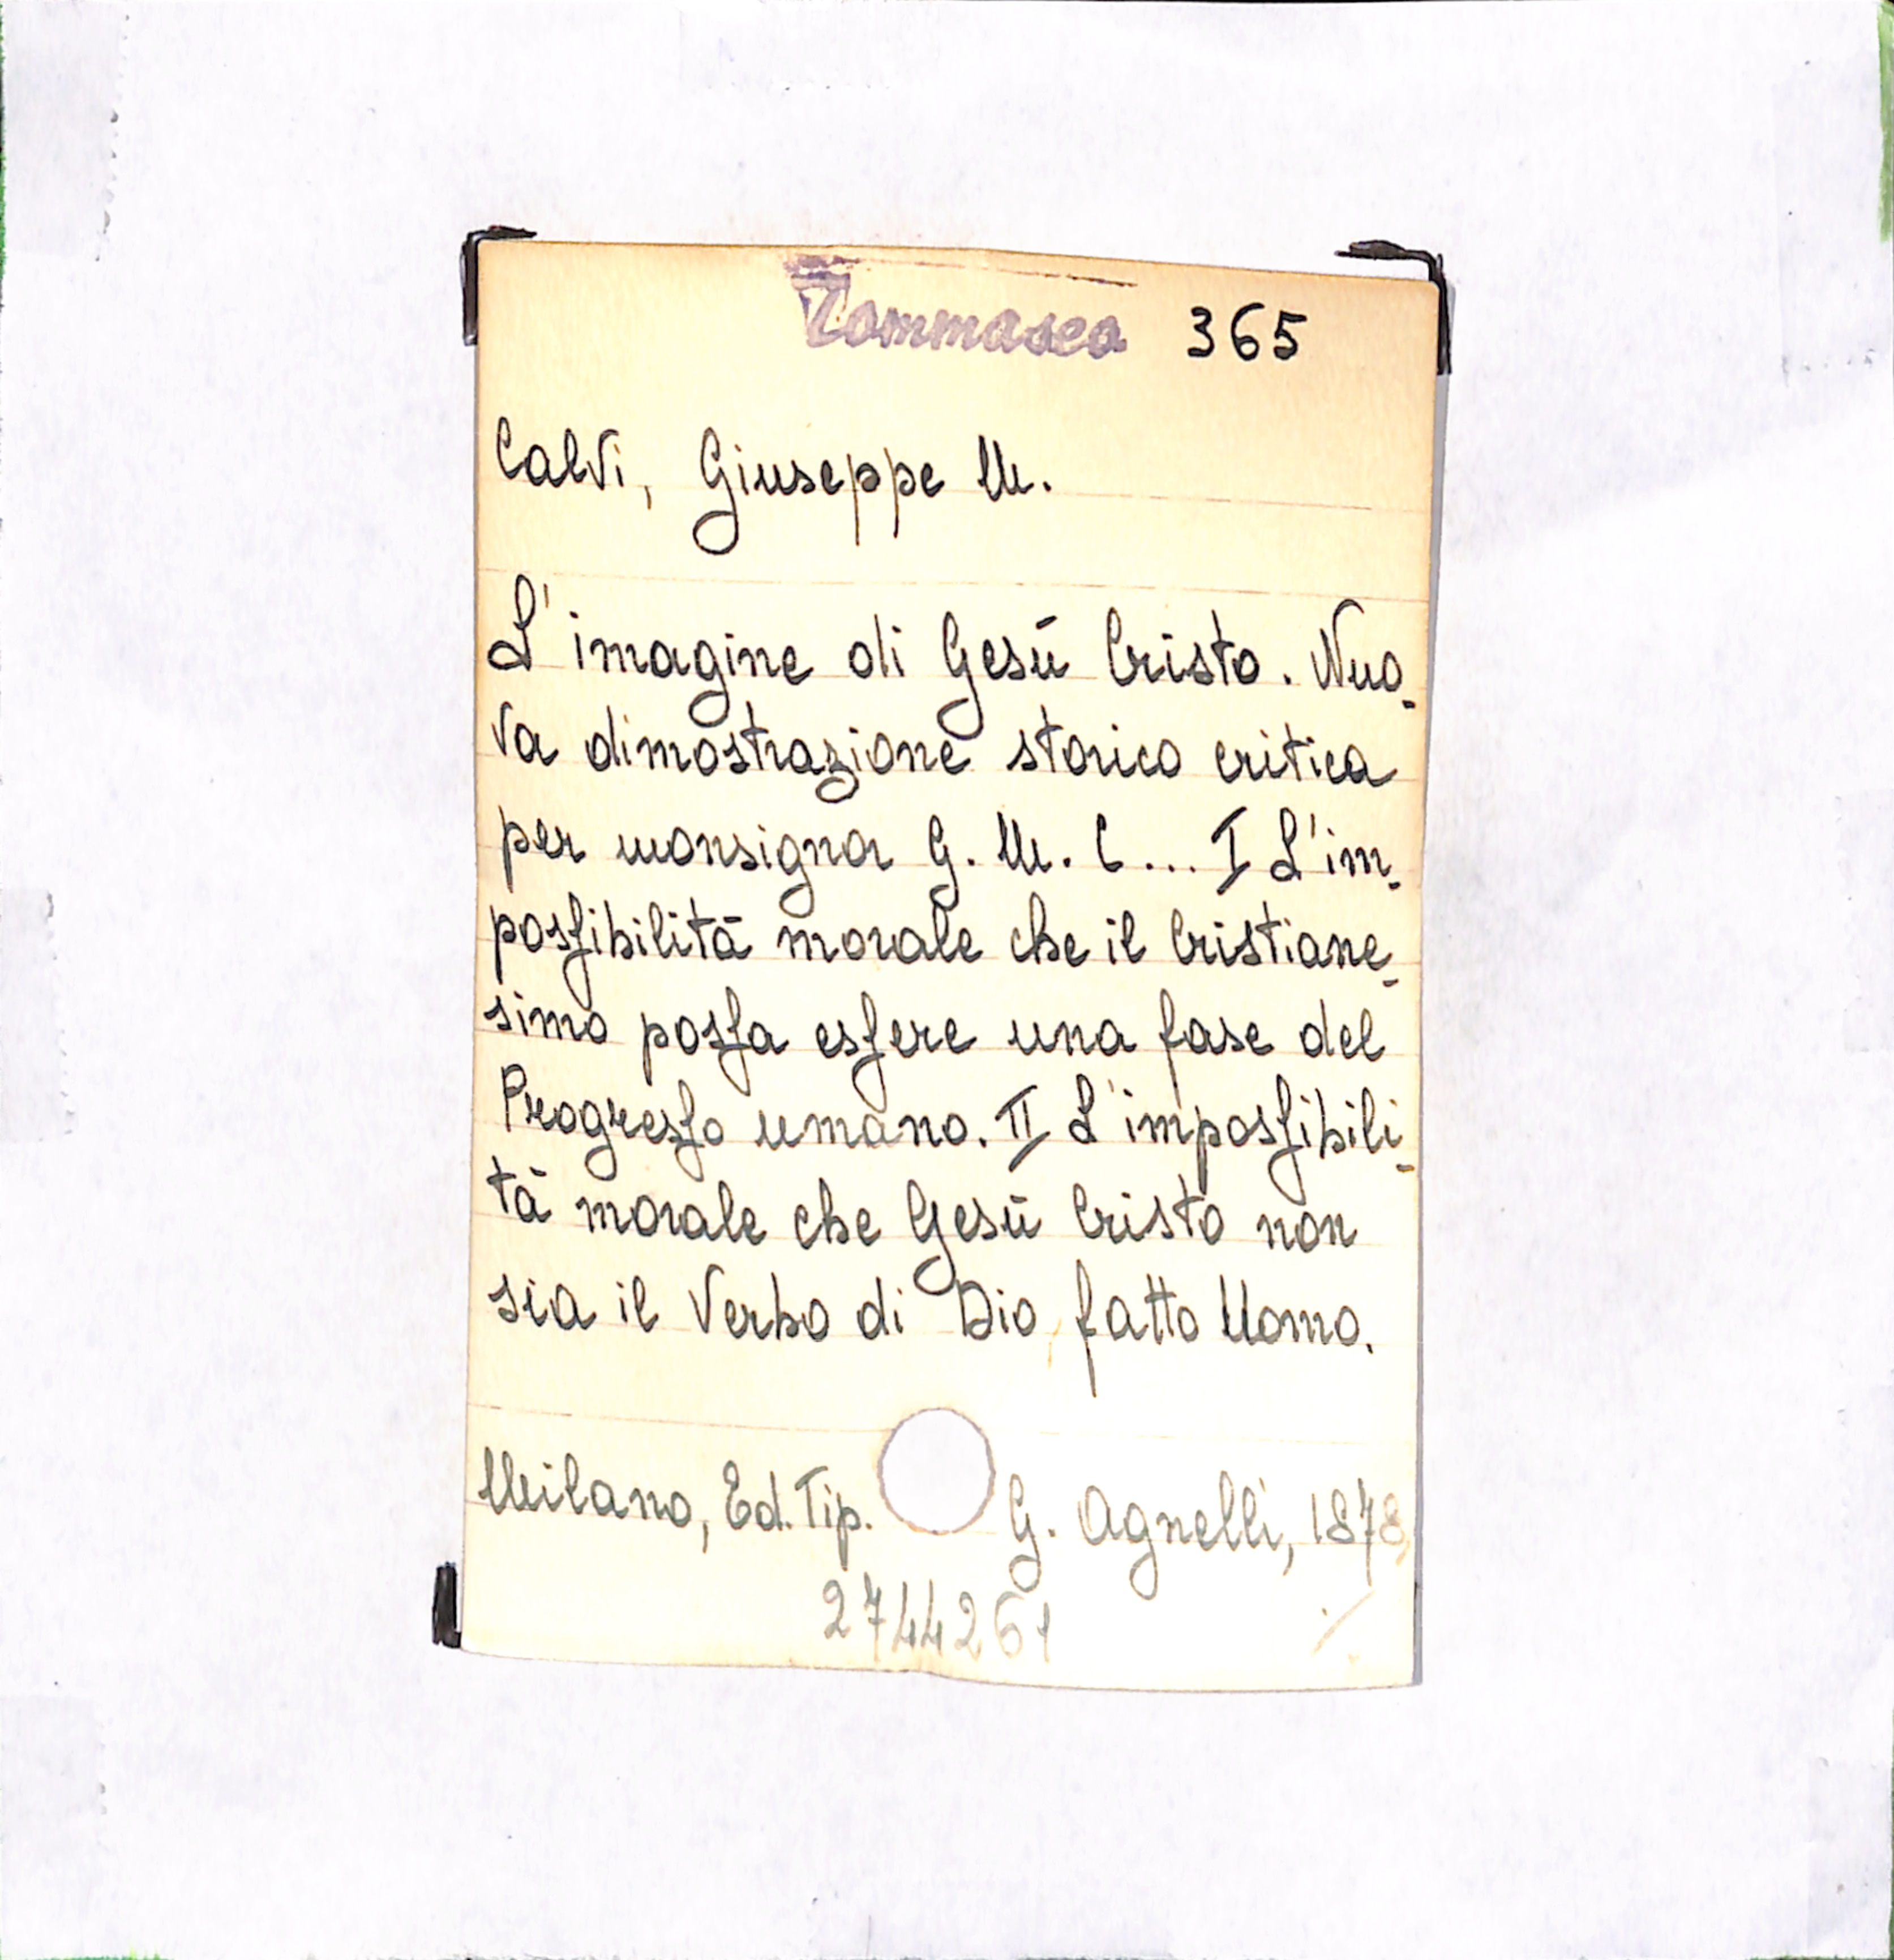 Tommaseo 365
Calvi, Giuseppe M.
L'imagine di Gesù Cristo. Nuo-
va dimostrazione storico critica
per monsignor G. M. C... I L'im-
possibilità morale che il Cristiane-
simo possa essere una fase del
Progresso umano. II L'impossibili-
tà morale che Gesù Cristo non
sia il Verbo di Dio fatto Uomo.
Milano, Ed. Tip. G. Agnelli, 1878,
2744261 ./.